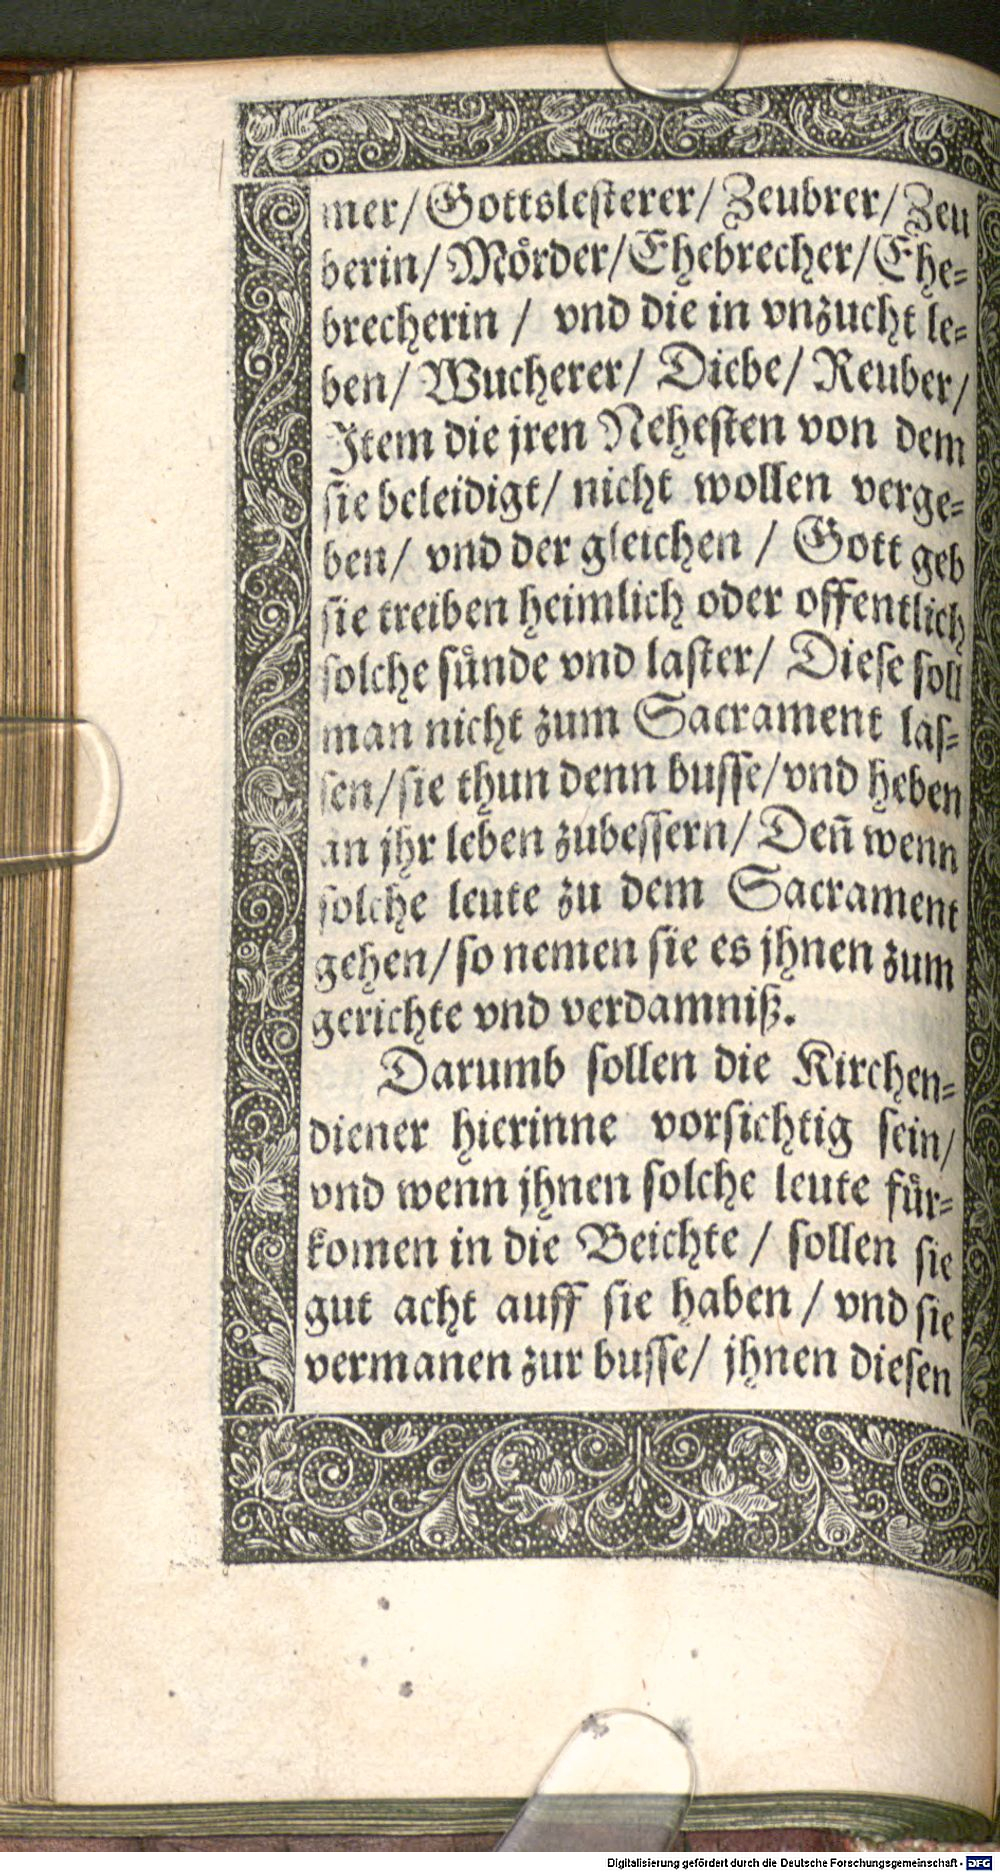 mer/ Gottslesterer/ Zeubrer/ Zeu
berin/ Mörder/ Ehebrecher/ Ehe-
brecherin / vnd die in vnzucht le-
ben/ Wucherer/ Diebe/ Reuber/
Item die jren Nehesten von dem
sie beleidigt/ nicht wollen verge-
ben/ vnd der gleichen / Gott geb
sie treiben heimlich oder offentlich
solche sünde vnd laster/ Diese soll
man nicht zum Sacrament las-
sen/ sie thun denn busse/ vnd heben
an jhr leben zubessern/ Deñ wenn
solche leute zu dem Sacrament
gehen/ so nemen sie es jhnen zum
gerichte vnd verdamniß.
Darumb sollen die Kirchen-
diener hierinne vorsichtig sein/
vnd wenn jhnen solche leute für-
komen in die Beichte / sollen sie
gut acht auff sie haben / vnd sie
vermanen zur busse/ jhnen diesen
Digitalisierung gefördert durch die Deutsche Forschungsgemeinschaft - DFG